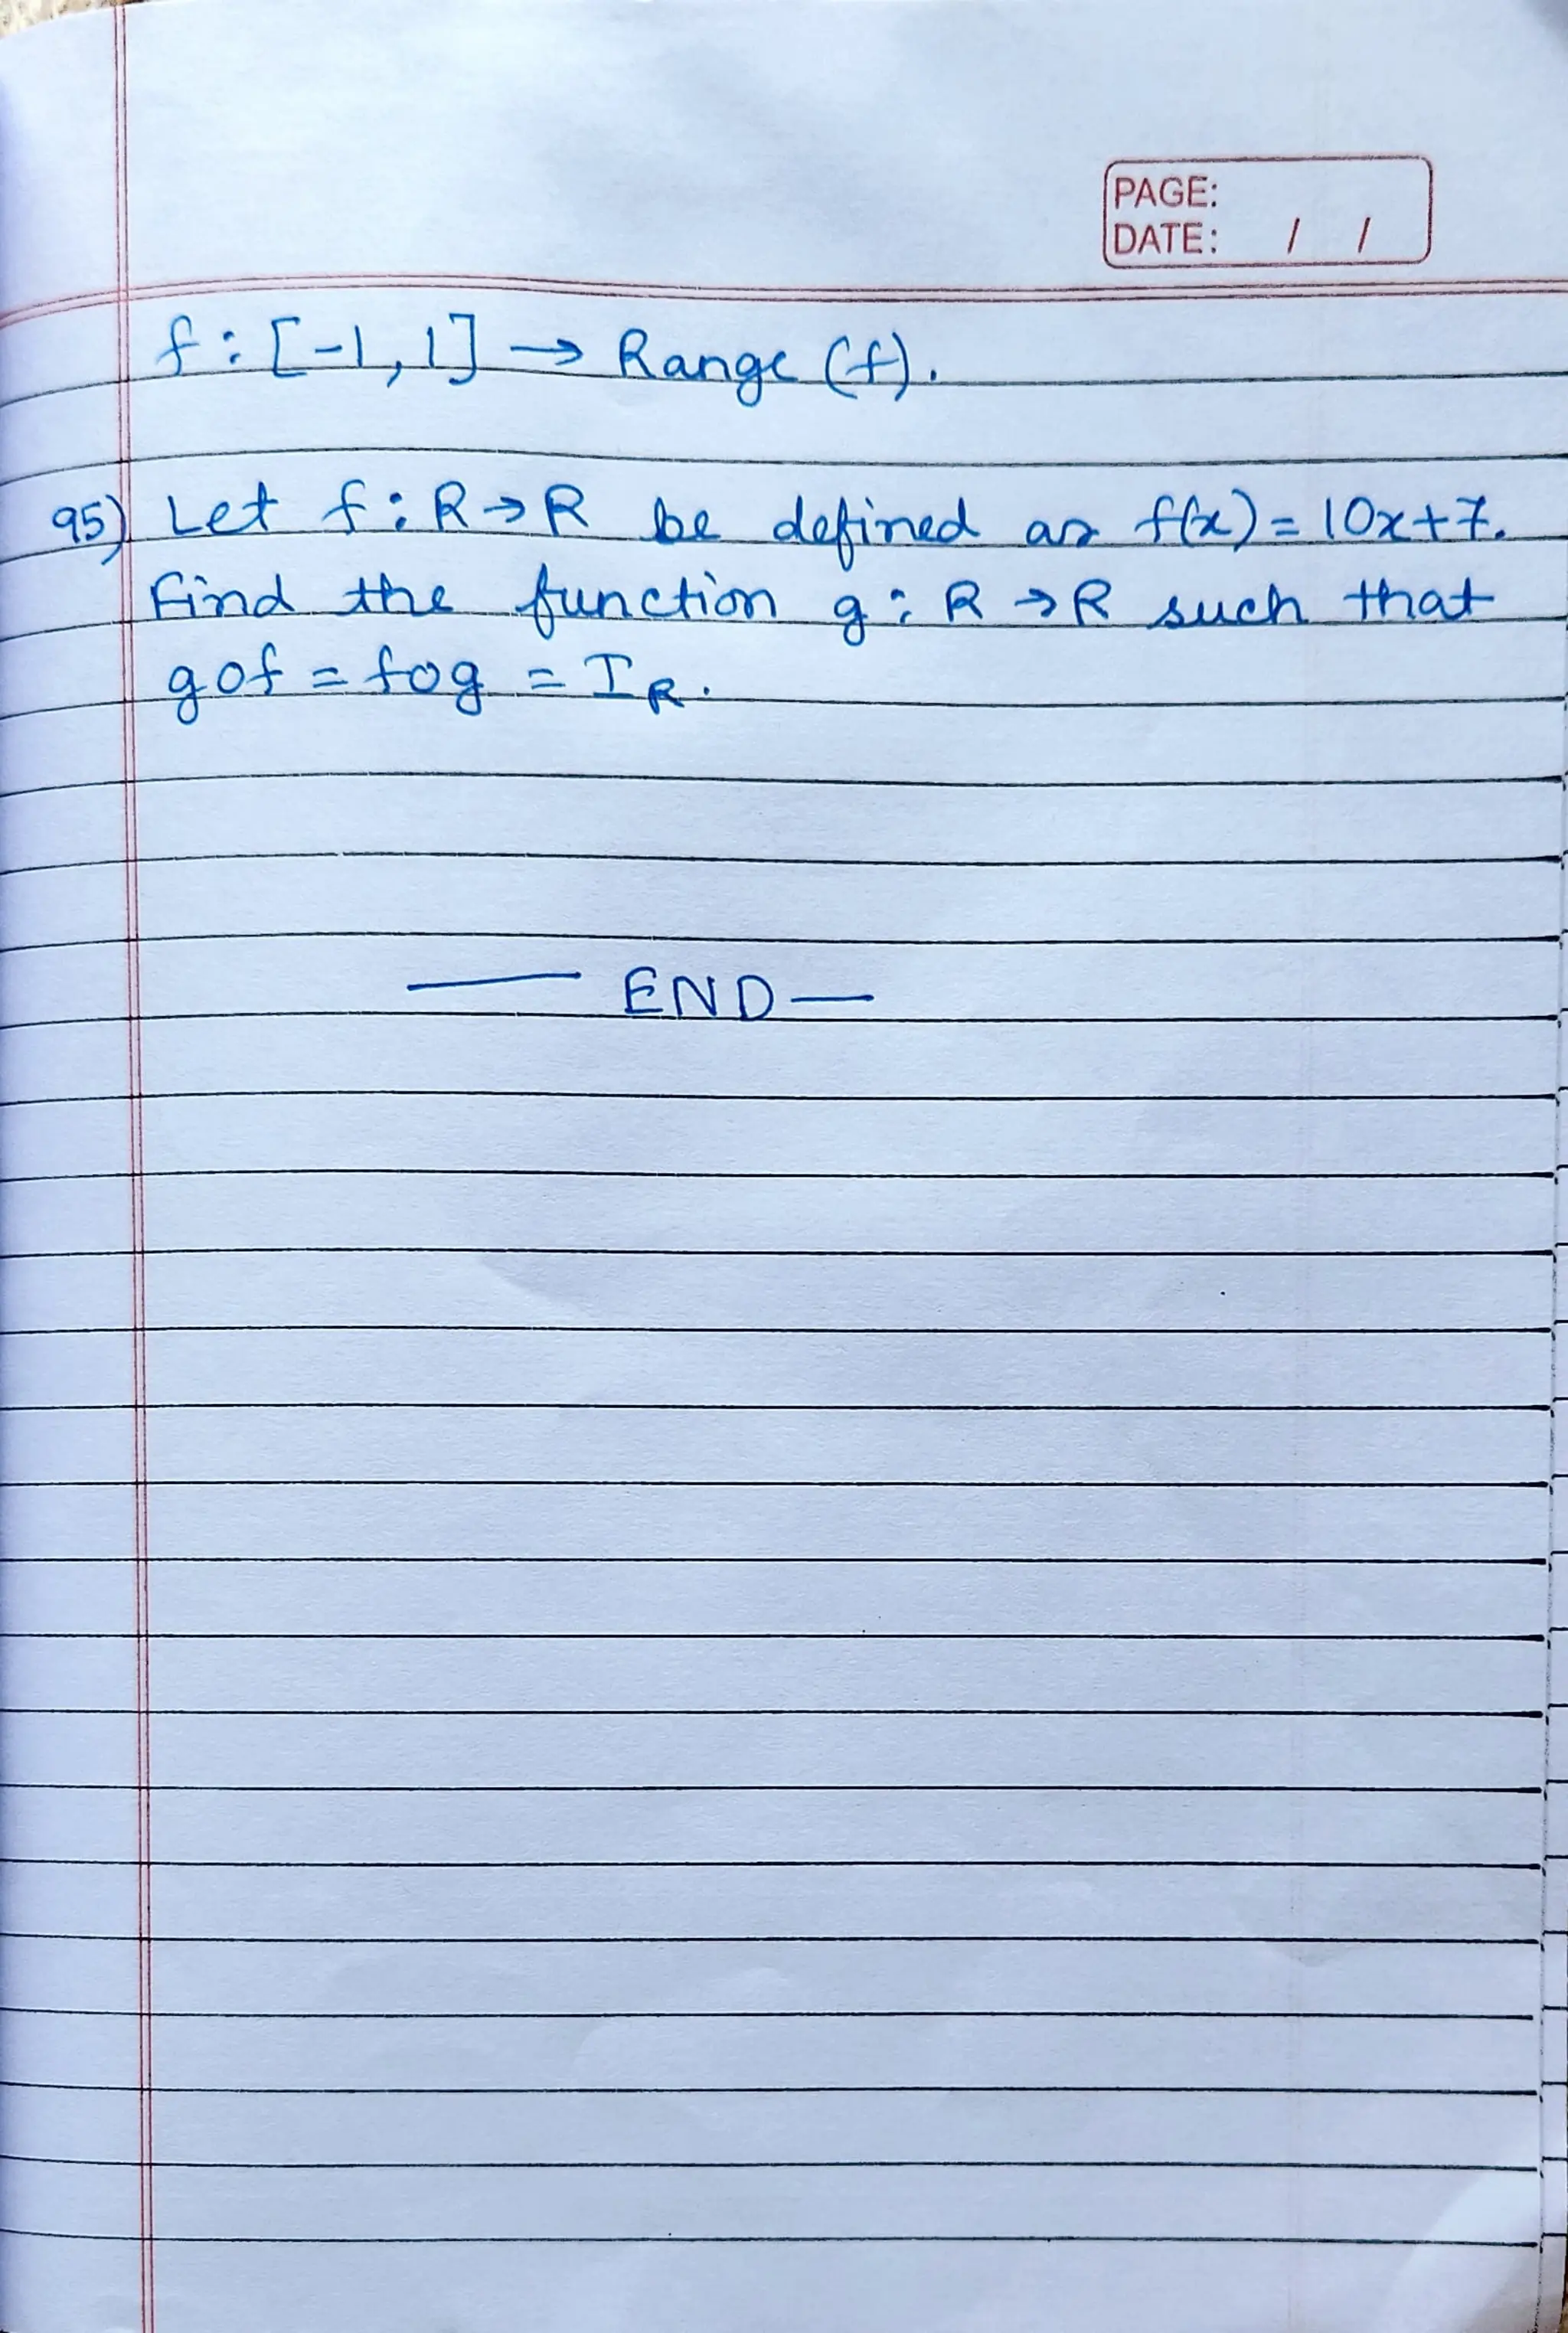 PAGE:
DATE: / /
f : [-1, 1] → Range (f).
95) Let f : R → R be defined as f(x) = 10x + 7.
Find the function g : R → R such that
gof = fog = I_R.
— END —